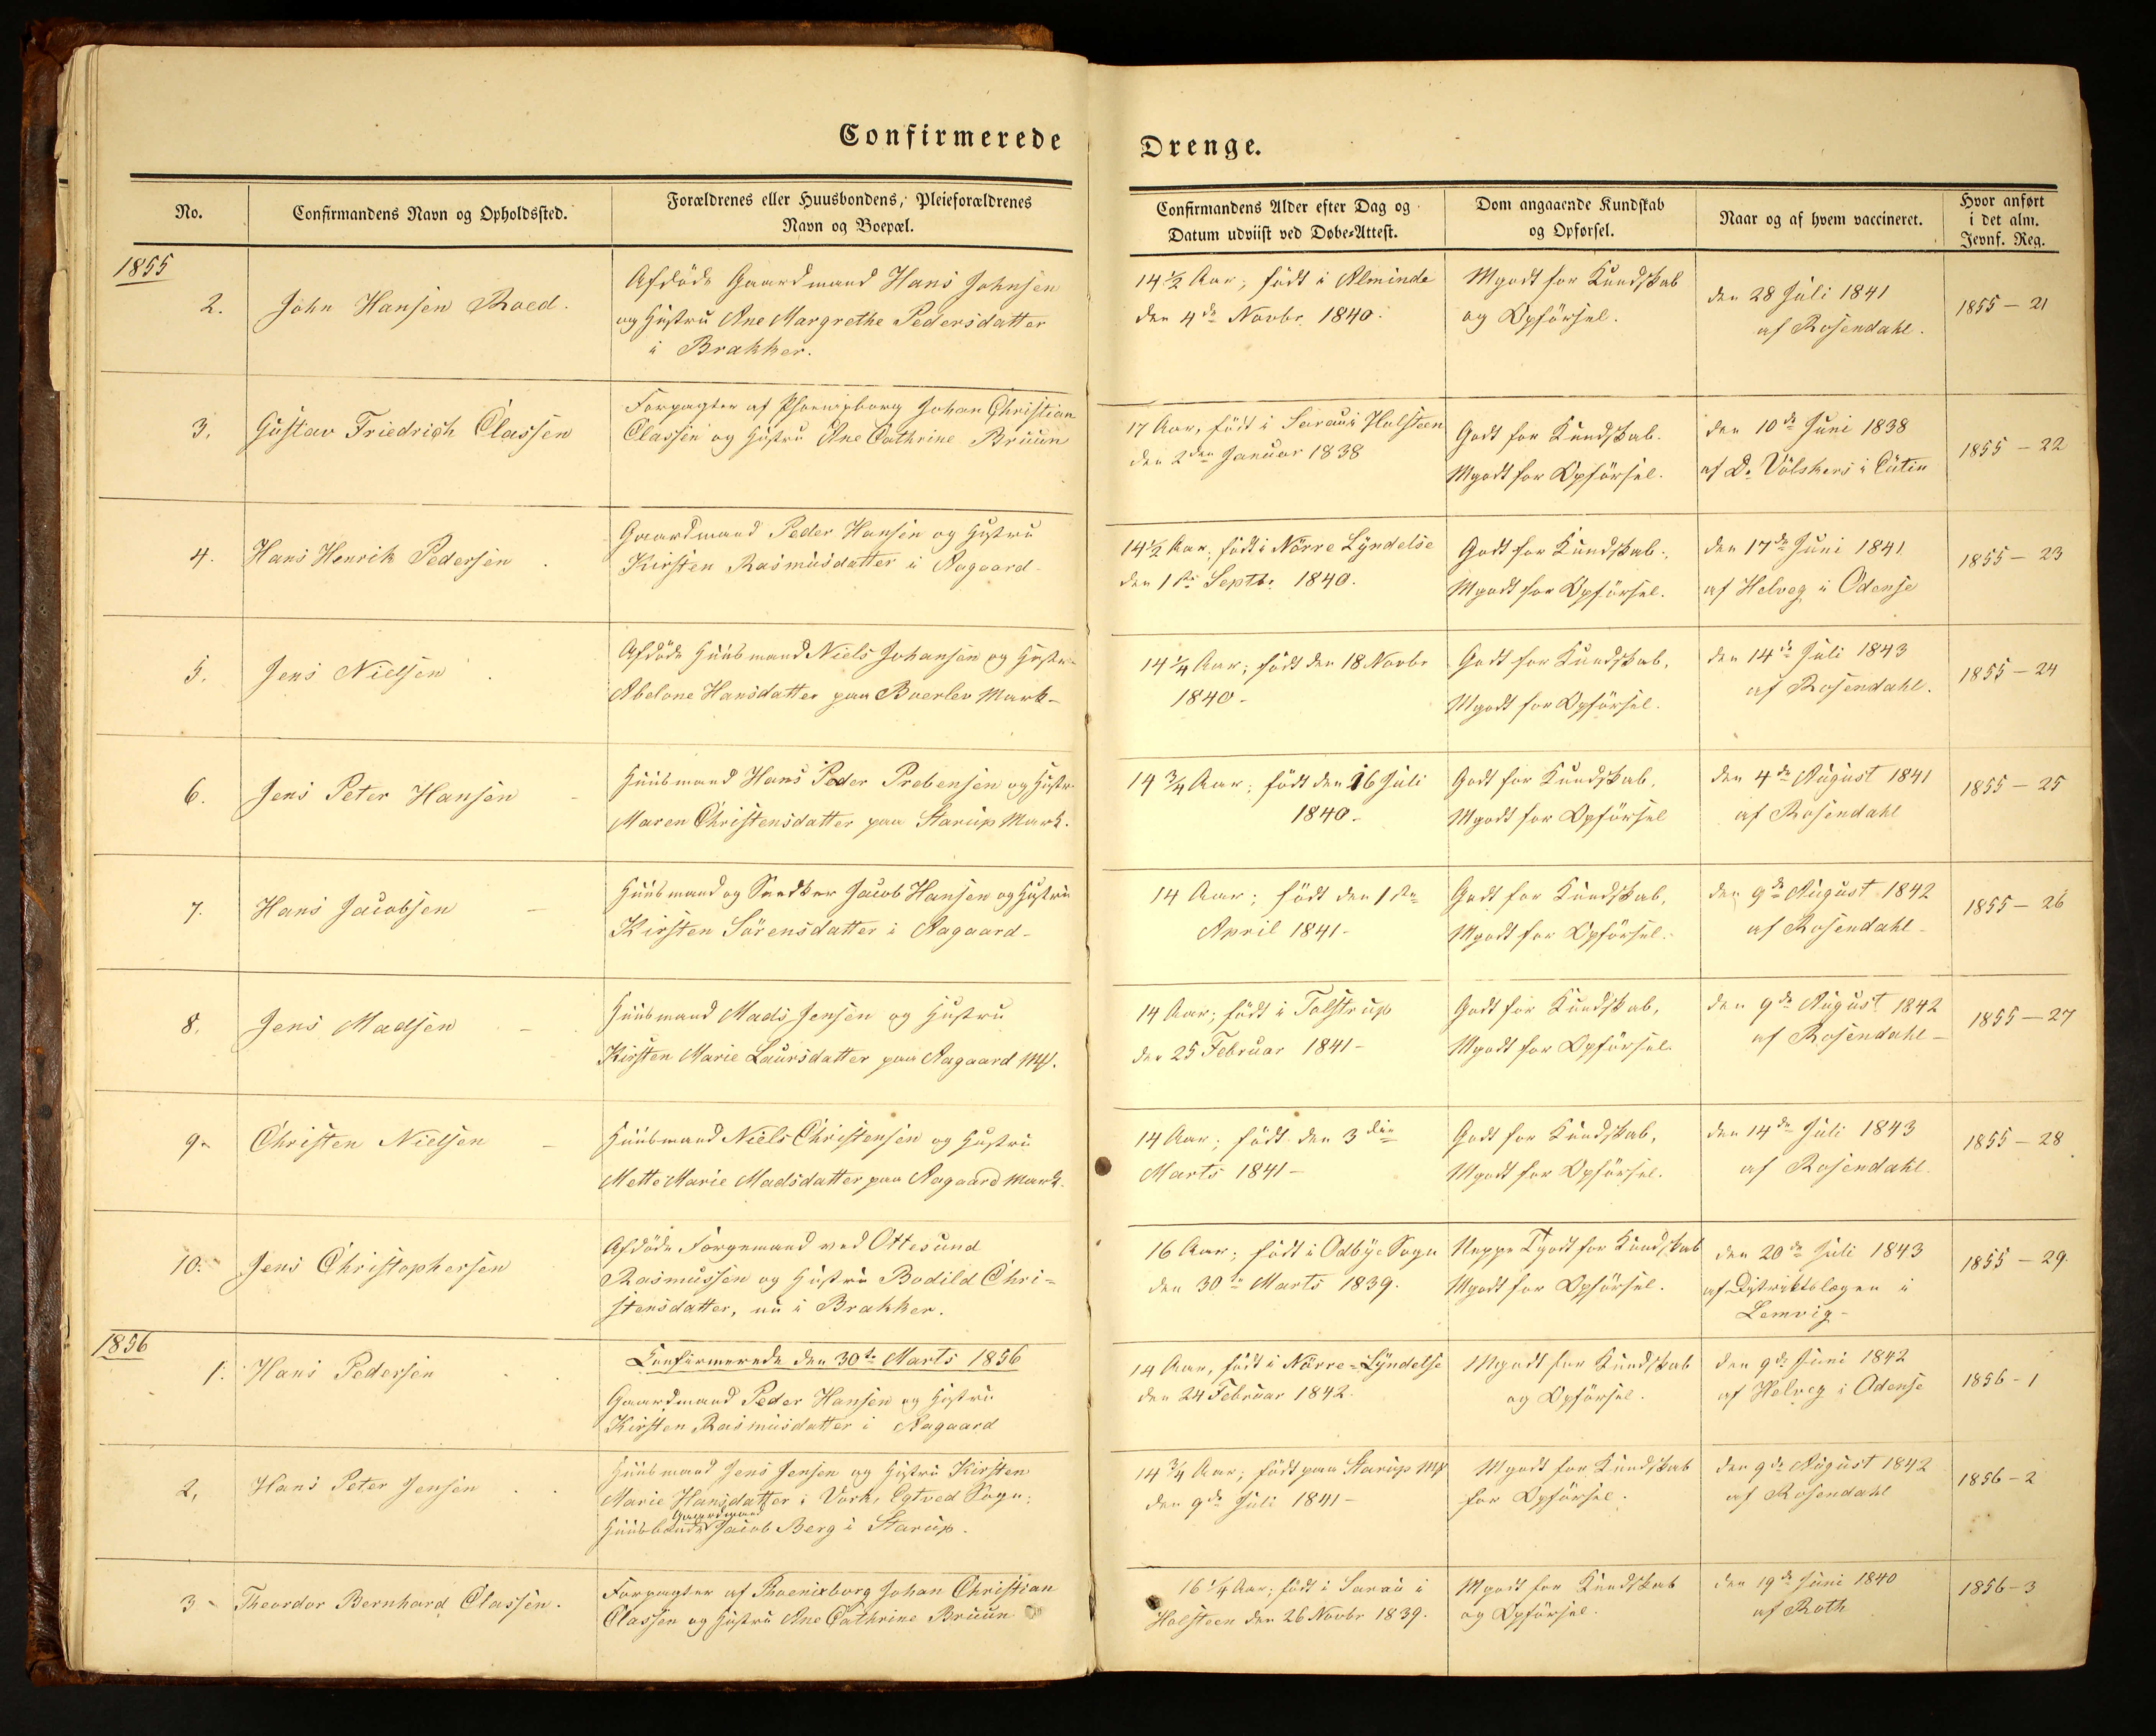 Confirmerede Drenge.
No.
Confirmandens Navn og Opholdssted.
Forældrenes eller Huusbondens, Pleieforældrenes
Navn og Boepæl.
Confirmandens Alder efter Dag og
Datum udviist ved Døbe=Attest.
Dom angaaende Kundskab
og Opførsel.
Naar og af hvem vaccineret.
Hvor anført
i det alm.
Jevnf. Reg.
1855
2.
John Hansen Roed.
Afdöde Gaardmand Hans Johnsen
og Hustru Ane Margrethe Pedersdatter
i Brakker.
14 1/2 Aar; födt i Alminde
den 4de Novbr. 1840.
Mgodt for Kundskab
og Opförsel.
den 28 Juli 1841
af Rosendahl.
1855 – 21
3.
Gustav Friedrich Classen
Forpagter af Phoenixborg Johan Christian
Classen og Hustru Ane Cathrine Bruun
17 Aar, födt i Sarau i Holsteen
den 2den Januar 1838
Godt for Kundskab.
Mgodt for Opförsel.
den 10de Juni 1838
af Dr Völskers i Eutin
1855 – 22
4.
Hans Henrik Pedersen
Gaardmand Peder Hansen og Hustru
Kirsten Rasmusdatter i Aagaard
14 1/2 Aar; födt i Nörre Lyndelse
den 1ste Septbr. 1840.
Godt for Kundskab.
Mgodt for Opförsel.
den 17de Juni 1841
af Helveg i Odense
1855 – 23
5.
Jens Nielsen
Afdöde Huusmand Niels Johansen og Hustru
Abelone Hansdatter paa Boerlev Mark –
14 1/4 Aar; födt den 18 Novbr
1840 –
Godt for Kundskab,
Mgodt for Opförsel.
den 14de Juli 1843
af Rosendahl.
1855 – 24
6.
Jens Peter Hansen –
Huusmand Hans Peder Prebensen og Hustru
Maren Christensdatter paa Starup Mark.
14 3/4 Aar; födt den 16 Juli
1840 –
Godt for Kundskab,
Mgodt for Opförsel
den 4de August 1841
af Rosendahl
1855 – 25
7.
Hans Jacobsen –
Huusmand og Snedker Jacob Hansen og Hustru
Kirsten Sörensdatter i Aagaard –
14 Aar; födt den 1ste
April 1841 –
Godt for Kundskab,
Mgodt for Opförsel.
den 9de August 1842
af Rosendahl –
1855 – 26
8.
Jens Madsen –
Huusmand Mads Jensen og Hustru
Kirsten Marie Laursdatter paa Aagaard Mk.
14 Aar; födt i Tolstrup
den 25 Februar 1841 –
Godt for Kundskab,
Mgodt for Opförsel.
den 9de August 1842
af Rosendahl –
1855 – 27
9.
Christen Nielsen –
Huusmand Niels Christensen og Hustru
Mette Marie Madsdatter paa Aagaard Mark.
14 Aar; födt den 3die
Marts 1841 –
Godt for Kundskab,
Mgodt for Opförsel.
den 14de Juli 1843
af Rosendahl.
1855 – 28
10.
Jens Christophersen
Afdöde Færgemand ved Ottesund
Rasmussen og Hustru Bodild Chri=
stensdatter, nu i Brakker.
16 Aar; födt i Odbye Sogn
den 30te Marts 1839.
Neppe Tgodt for Kundskab
Mgodt for Opförsel.
den 20de Juli 1843
af Distriktslægen i
Lemvig –
1855 – 29.
1856
Confirmerede den 30te Marts 1856
1.
Hans Pedersen
Gaardmand Peder Hansen og Hustru
Kirsten Rasmusdatter i Aagaard
14 Aar, födt i Nörre=Lyndelse
den 24 Februar 1842.
Mgodt for Kundskab
og Opförsel.
den 9de Juni 1842
af Helveg i Odense
1856 – 1
2,
Hans Peter Jensen
Huusmand Jens Jensen og Hustru Kirsten
Marie Hansdatter i Vork, Egtved Sogn;
Gaardmand
Huusbonde Jacob Berg i Starup.
14 3/4 Aar; födt paa Starup Mk
den 9de Juli 1841 –
Mgodt for Kundskab
for Opförsel.
den 9de August 1842
af Rosendahl
1856 – 2
3 –
Theordor Bernhard Classen.
Forpagter af Phoenixborg Johan Christian
Classen og Hustru Ane Cathrine Bruun
16 1/4 Aar; födt i Sarau i
Holsteen den 26 Novbr 1839.
Mgodt for Kundskab
og Opförsel.
den 19de Juni 1840
af Roth
1856 – 3